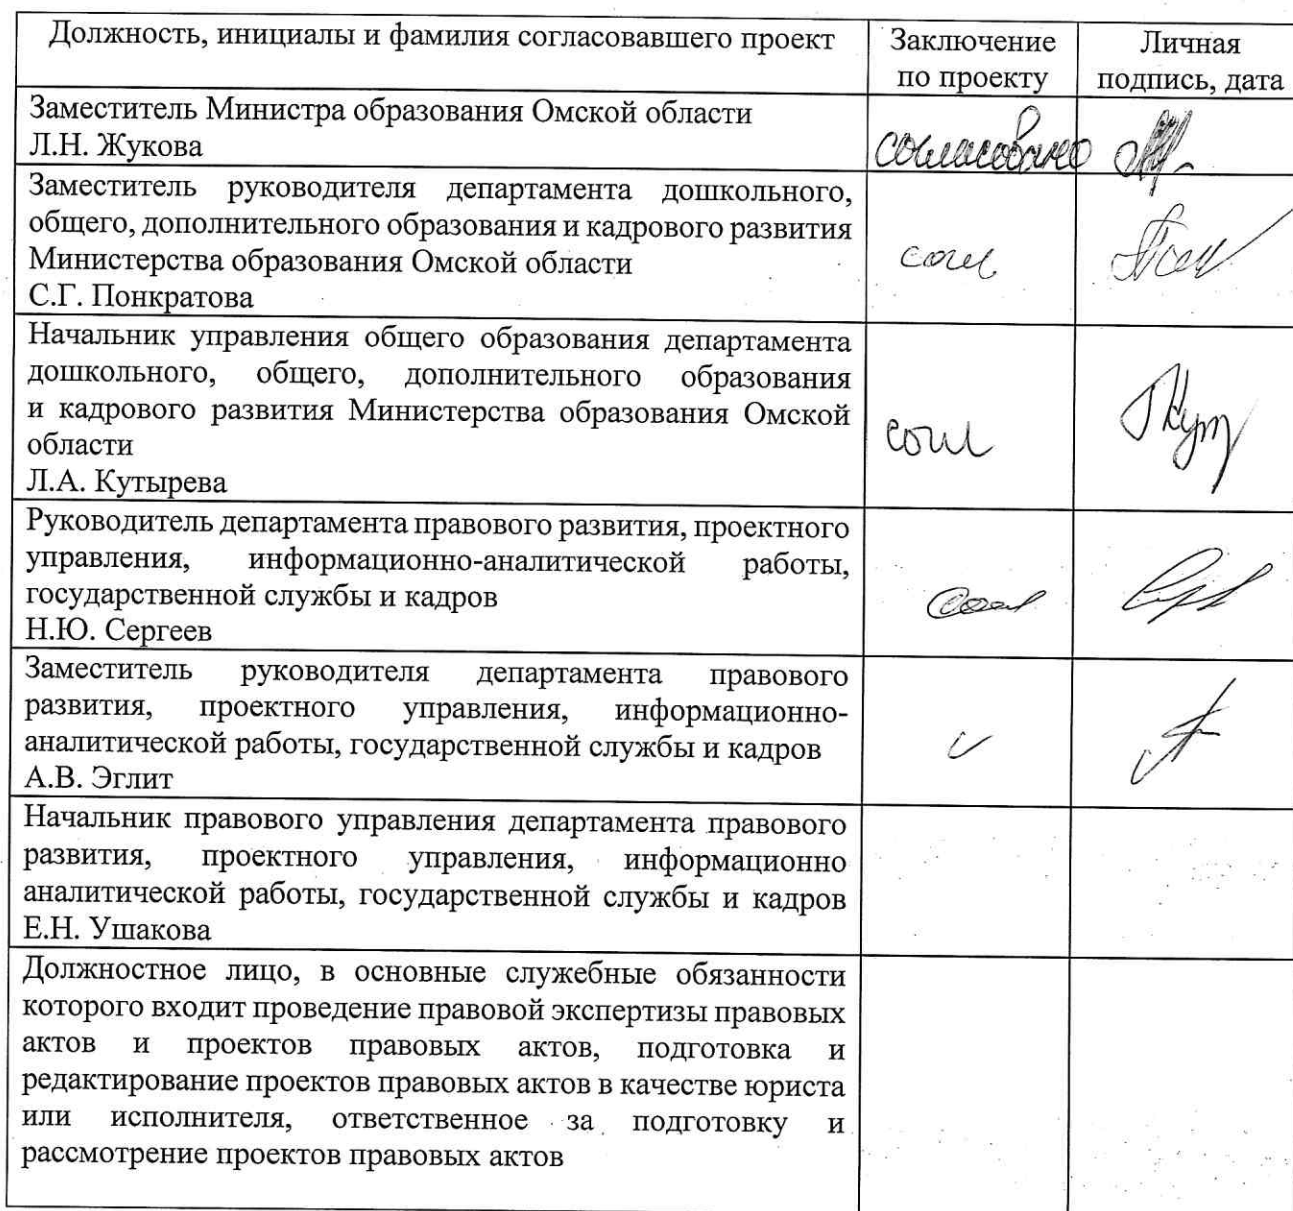 Должность, инициалы и фамилия согласовавшего проект
Заключение
по проекту
Личная
подпись, дата
Заместитель Министра образования Омской области
Л.Н. Жукова
согласовано
Заместитель руководителя департамента дошкольного,
общего, дополнительного образования и кадрового развития
Министерства образования Омской области
С.Г. Понкратова
согл
Начальник управления общего образования департамента
дошкольного, общего, дополнительного образования
и кадрового развития Министерства образования Омской
области
Л.А. Кутырева
согл
Руководитель департамента правового развития, проектного
управления, информационно-аналитической работы,
государственной службы и кадров
Н.Ю. Сергеев
согл
Заместитель руководителя департамента правового
развития, проектного управления, информационно-
аналитической работы, государственной службы и кадров
А.В. Эглит
Начальник правового управления департамента правового
развития, проектного управления, информационно
аналитической работы, государственной службы и кадров
Е.Н. Ушакова
Должностное лицо, в основные служебные обязанности
которого входит проведение правовой экспертизы правовых
актов и проектов правовых актов, подготовка и
редактирование проектов правовых актов в качестве юриста
или исполнителя, ответственное за подготовку и
рассмотрение проектов правовых актов